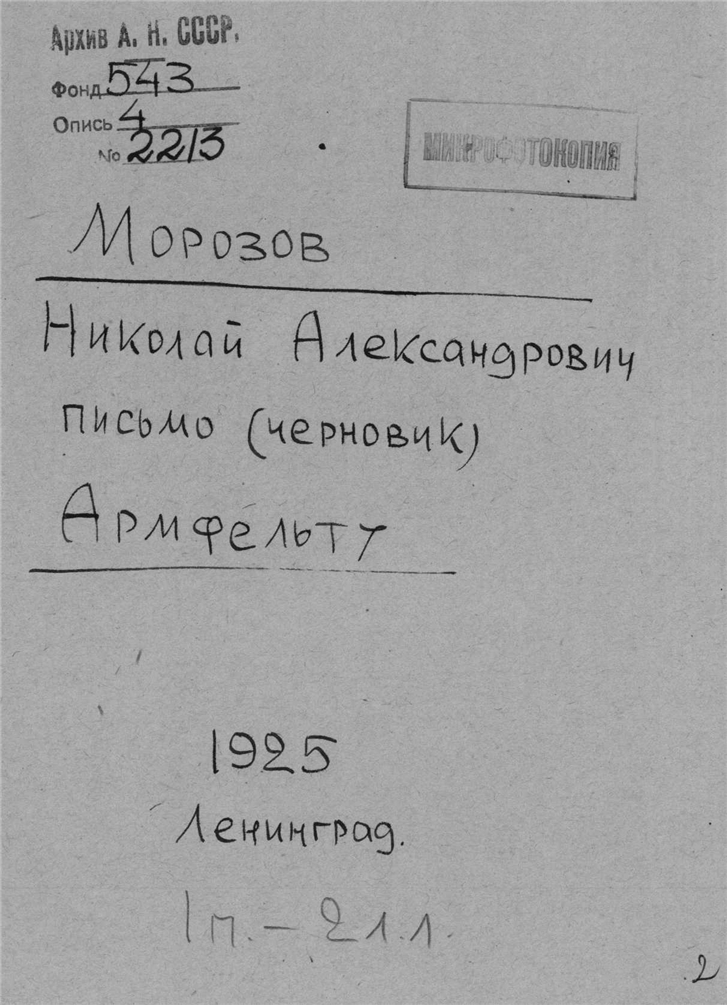 Архив А. Н. СССР.
Фонд 543
Опись 4
№ 2213
МИКРОФОТОКОПИЯ
Морозов
Николай Александрович
письмо (черновик)
Армфельту
1925
Ленинград.
1п. – 2л.л.
2